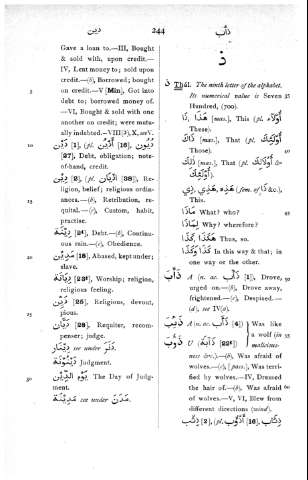 دين
244
ذأب
Gave a loan to.—III, Bought
& sold with, upon credit.—
IV, Lent money to; sold upon
credit.—(b), Borrowed; bought
5 on credit.—V [Min], Got into
debt to; borrowed money of.
—VI, Bought & sold with one
another on credit; were mutu-
ally indebted.—VIII(b), X,
دَيْن [1], (pl. دُيُون [16]
[27], Debt, obligation; note-
of-hand, credit.
دِين [2], (pl. أَدْيَان [38]), Re-
ligion, belief; religious ordin-
15 ances.—(b), Retribution, re-
quital.—(c), Custom, habit,
practise.
Debt.—(b), Continu-
ous rain.—(c), Obedience.
Abased, kept under;
slave.
Worship; religion,
religious feeling.
دَيِّن [26], Religious, devout,
25 pious.
دَيَّان [28], Requiter, recom-
penser; judge.
دِينَار see under دنر
دَيْنُونَة Judgment.
30 يَوْم الدِّين The Day of Judg-
ment.
مَدِينَة see under مدن
ذ
ذ Thál. The ninth letter of the alphabet.
Its numerical value is Seven 35
Hundred, (700).
ذَا, هٰذَا [mas.], This (pl.
These).
[mas.], That (pl.
Those). 40
[mas.], That (pl.
(fem. of ذَا &c.),
This.
مَاذَا What? who? 45
لِمَاذَا Why? wherefore?
هٰكَذَا, كَذَا Thus, so.
كَذَا وَكَذَا In this way & that; in
one way or the other.
ذَأَبَ A (n. ac. ذَأْب [1]), Drove, 50
urged on.—(b), Drove away,
frightened.—(c), Despised.—
(d), see IV(a).
ذَئِبَ A (n. ac. ذَأَب [4]) Was like
a wolf (in 55
ذَؤُبَ U
malicious-
ness &c.).—(b), Was afraid of
wolves.—(c), [pass.], Was terri-
fied by wolves.—IV, Dressed
the hair of.—(b), Was afraid 60
of wolves.—V, VI, Blew from
different directions (wind).
ذِئْب [2], (pl.